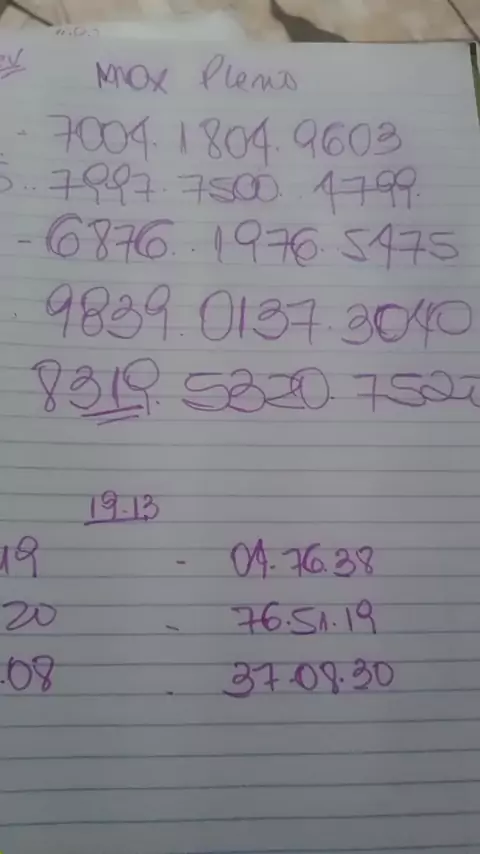 Max Pleno
- 7004. 1804. 9603
5.. 7997. 7500. 4799.
- 6876.. 1976. 5475
. 9839. 0137. 3040
8319. 5320. 752
19-13
19 - 04.76.38
20 - 76.51.19
.08 - 37.08.30